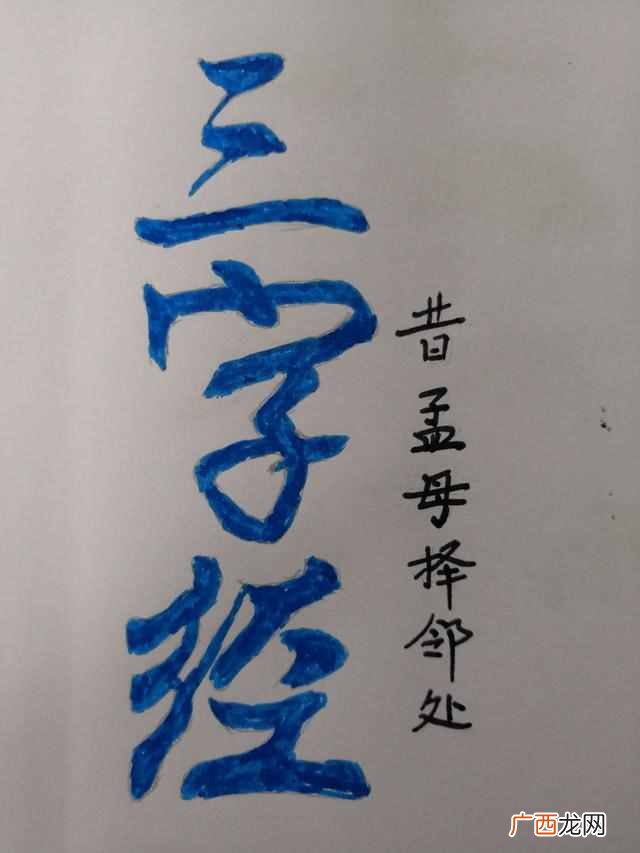 三字经
昔孟母择邻处
广西龙网